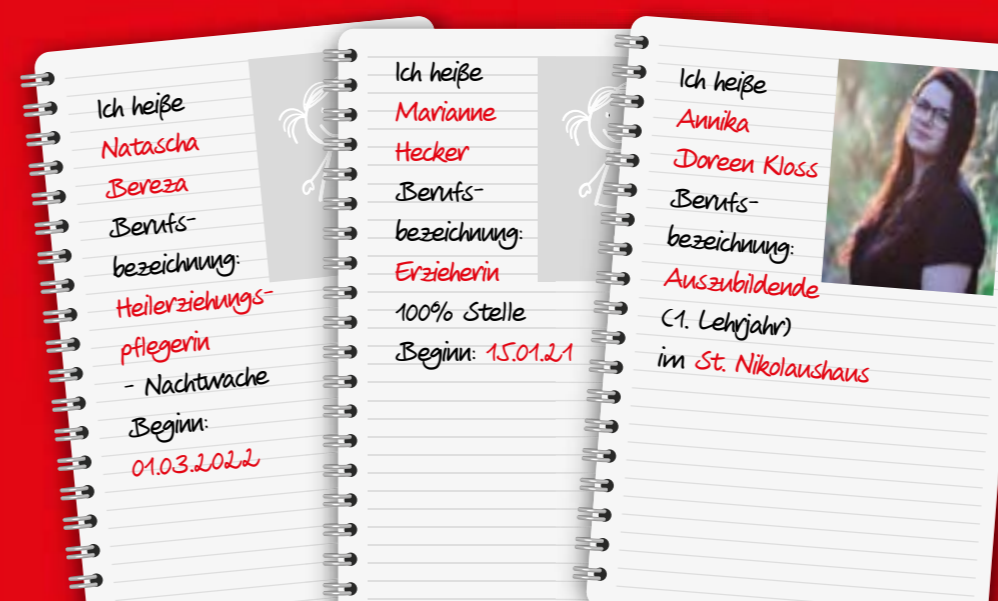 Ich heiße
Natascha
Bereza
Berufs-
bezeichnung:
Heilerziehungs-
pflegerin
- Nachtwache
Beginn:
01.03.2022
Ich heiße
Marianne
Hecker
Berufs-
bezeichnung:
Erzieherin
100% Stelle
Beginn: 15.01.21
Ich heiße
Annika
Doreen Kloss
Berufs-
bezeichnung:
Auszubildende
(1. Lehrjahr)
im St. Nikolaushaus